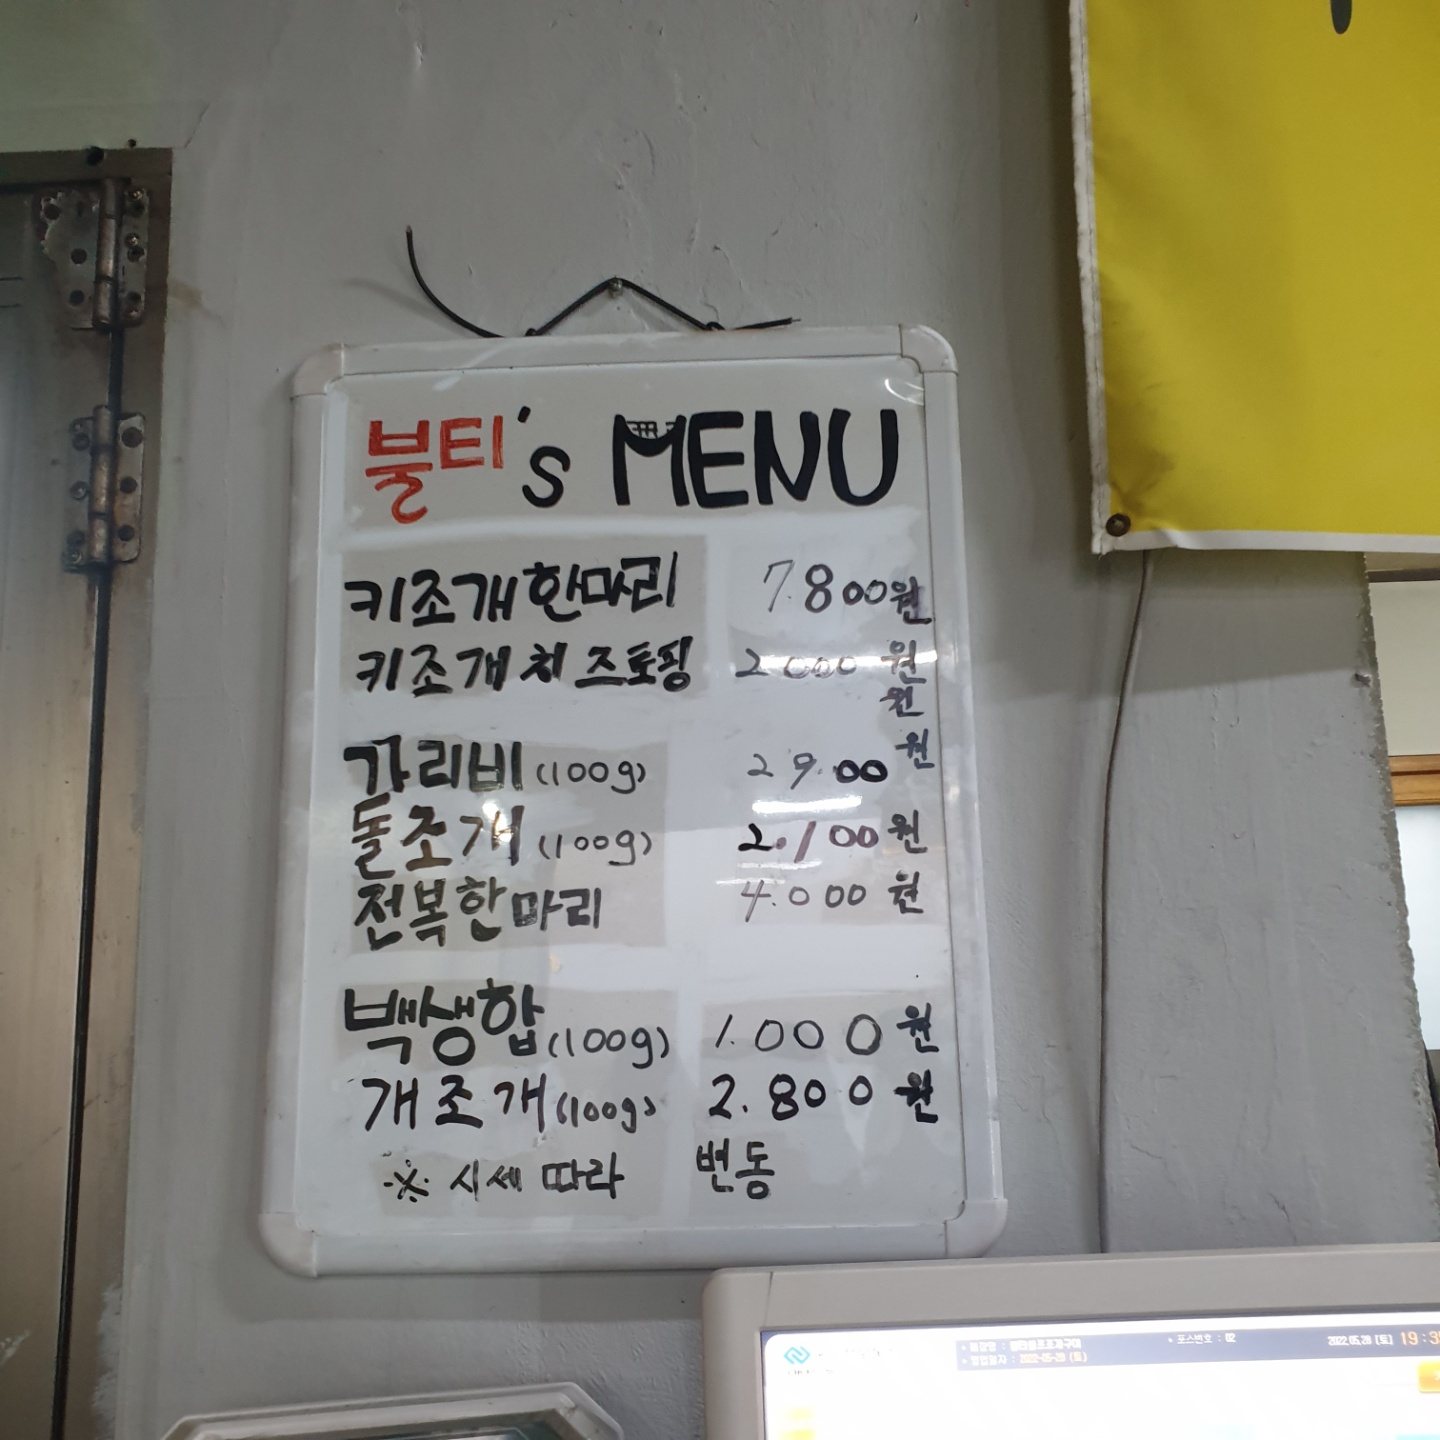 불티's MENU
키조개한마리 7.800원
키조개치즈토핑 2000원
원
가리비(100g) 29.00원
돌조개(100g) 2.100원
전복한마리 4.000원
백생합(100g) 1.000원
개조개(100g) 2.800원
※ 시세 따라 변동
포스번호 : 02
2022.05.28 (토) 19:3
영업일자 : 2022-05-28 (토)